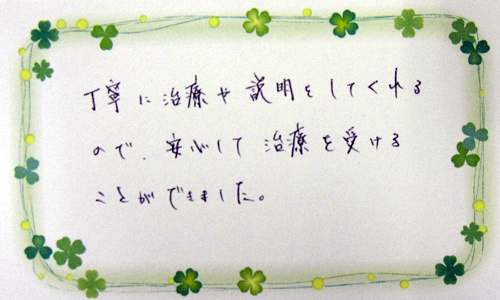 丁寧に治療や説明をしてくれる
ので、安心して治療を受ける
ことができました。